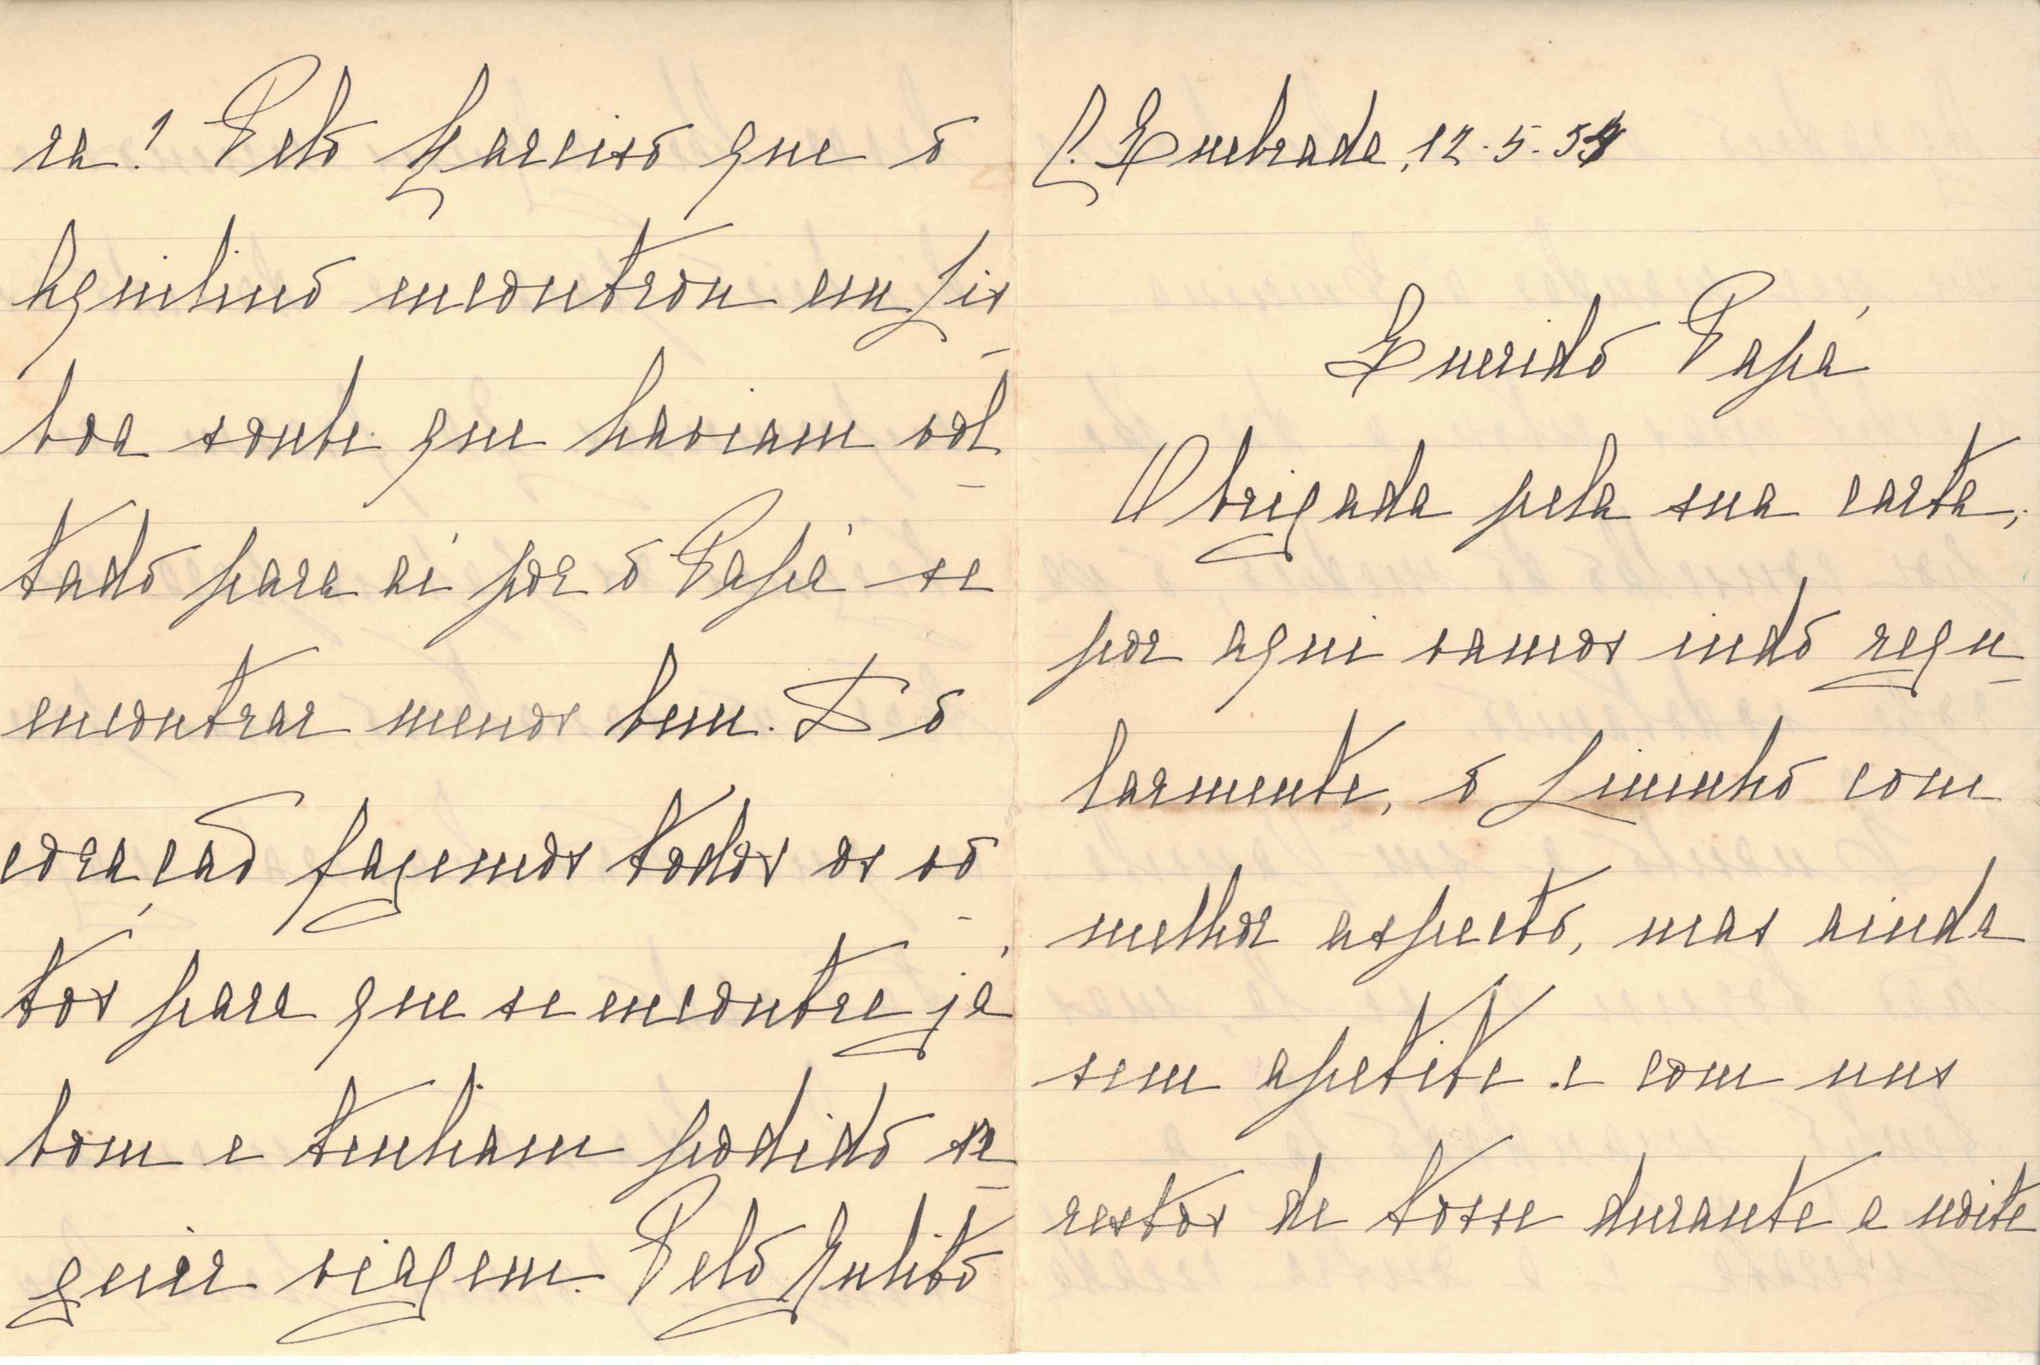 ra! Pelo Narciso que o
Aquilino encontrou em Lis-
boa soube que haviam vol-
tado para aí por o Papá se
encontrar menos bem. Do
coração fazemos todos os vo-
tos para que se encontre já
bom e tenham podido se-
guir viagem. Pelo Julito
C. Quebrada, 12-5-54
Querido Papá
Obrigada pela sua carta,
por aqui vamos indo regu-
larmente, o Lininho com
melhor aspecto, mas ainda
sem apetite e com uns
restos de tosse durante a noite